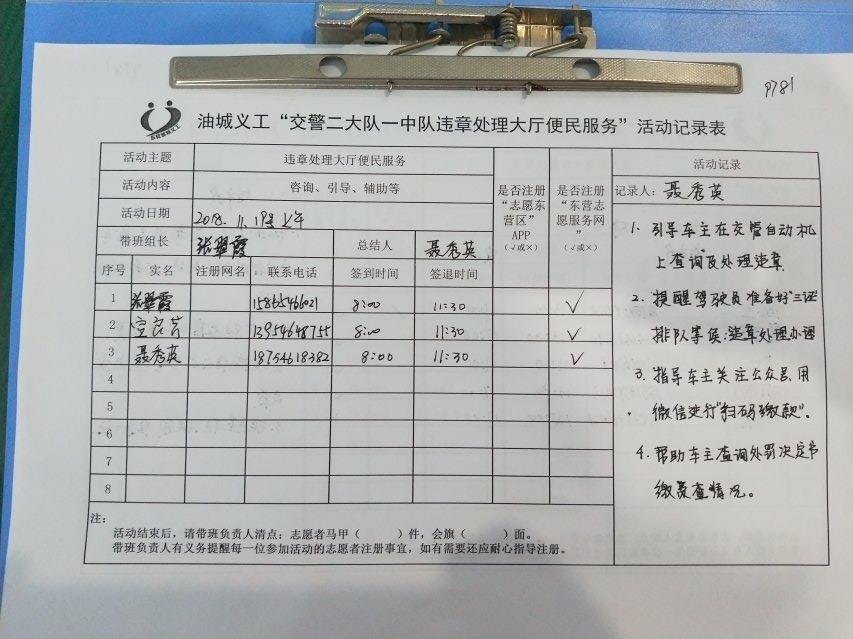 9781
油城义工
油城义工“交警二大队一中队违章处理大厅便民服务”活动记录表
活动主题 违章处理大厅便民服务
活动内容 咨询、引导、辅助等
活动日期 2018.11.19号上午
带班组长 张翠霞 总结人 聂秀英
序号 实名 注册网名 联系电话 签到时间 签退时间
是否注册“志愿东营区”APP（√或×）
是否注册“东营志愿服务网”（√或×）
1 张翠霞 15865466021 8:00 11:30 √
2 13954648755 8:00 11:30 √
3 聂秀英 18754618382 8:00 11:30 √
4
5
6
7
8
活动记录
记录人：聂秀英
1. 引导车主在交管自动机
上查询及处理违章
2. 提醒驾驶员准备好“三证”
排队等候:违章处理办理
3. 指导车主关注公众号,用
微信进行“扫码缴款”。
4. 帮助车主查询处罚决定书
缴费情况。
注：
活动结束后，请带班负责人清点：志愿者马甲（ ）件，会旗（ ）面。
带班负责人有义务提醒每一位参加活动的志愿者注册事宜，如有需要还应耐心指导注册。